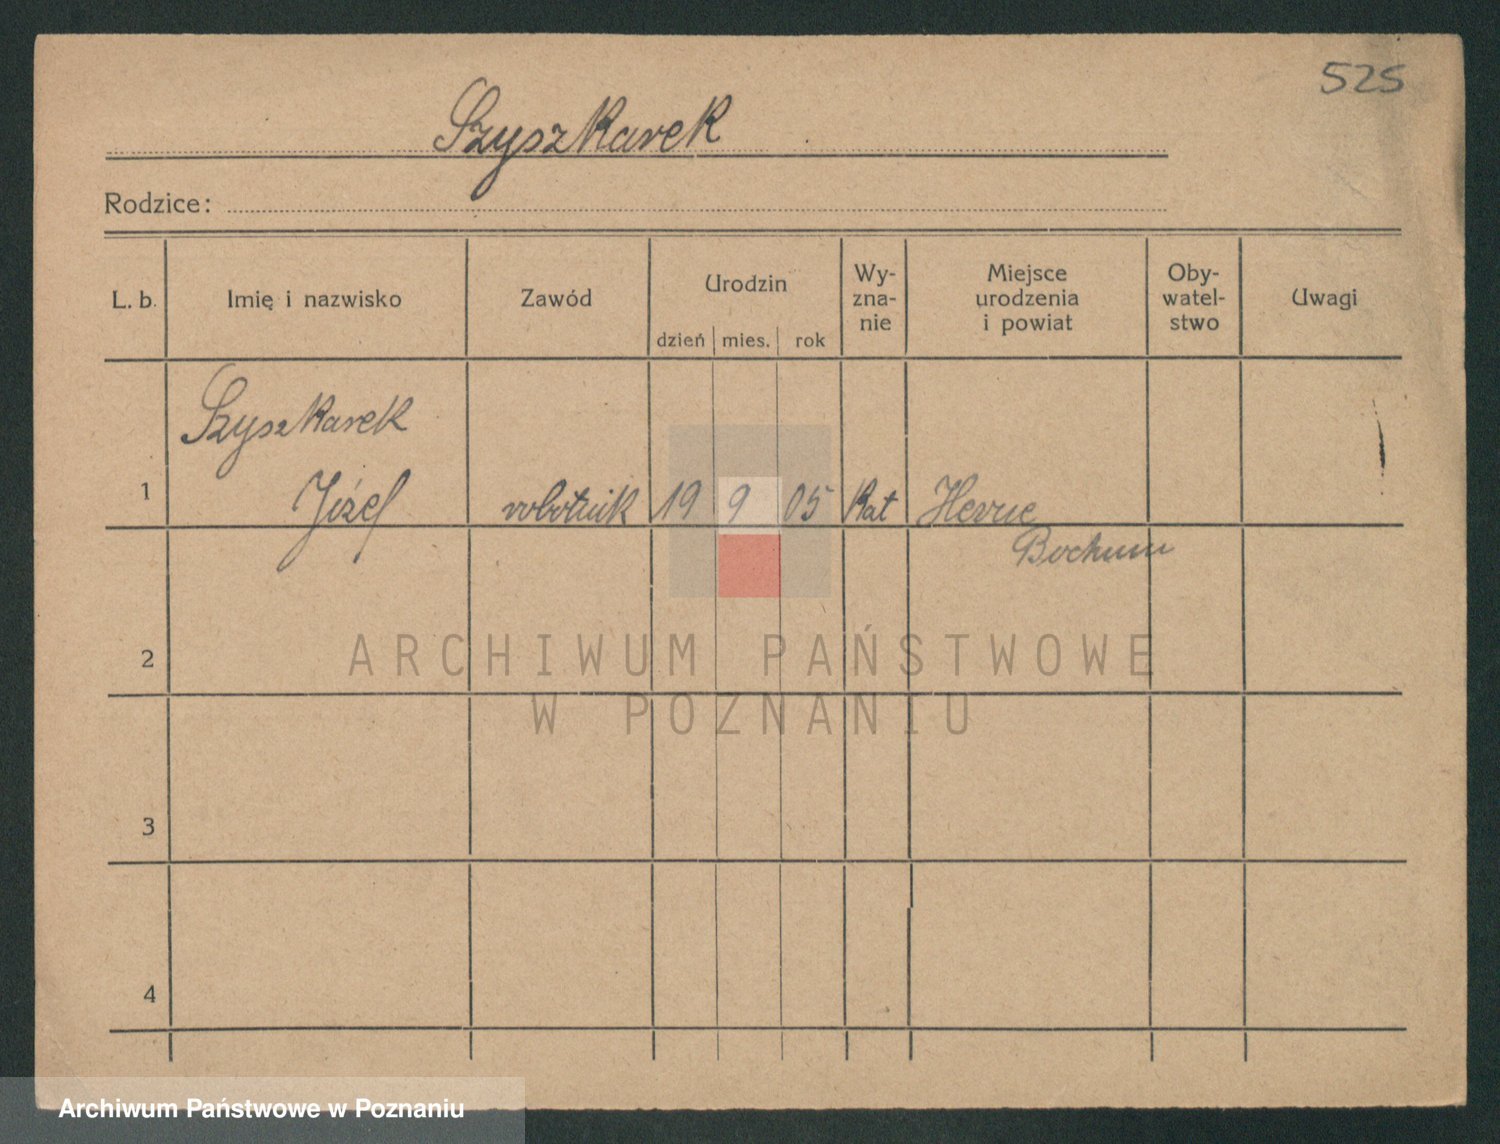 525
Szyszkarek
Rodzice:
L. b. Imię i nazwisko Zawód Urodzin Wy-zna-nie Miejsce urodzenia i powiat Oby-watel-stwo Uwagi
dzień mies. rok
Szyszkarek
1 Józef robotnik 19 9 05 Kat Herne
Bochum
2
ARCHIWUM PAŃSTWOWE
W POZNANIU
3
4
Archiwum Państwowe w Poznaniu